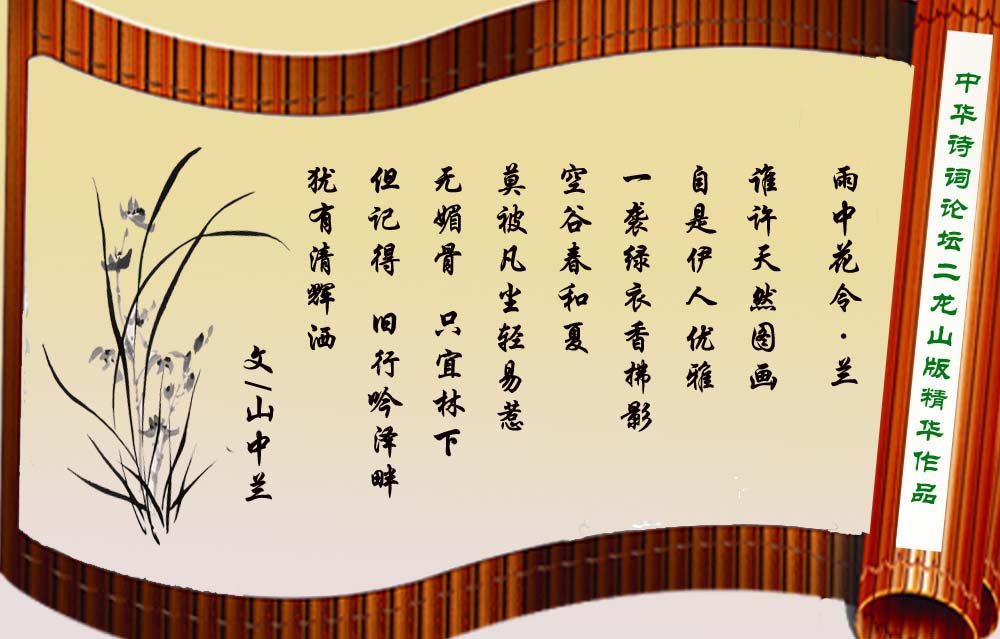 中华诗词论坛二龙山版精华作品
雨中花令·兰
谁许天然图画
自是伊人优雅
一袭绿衣香拂影
空谷春和夏
莫被凡尘轻易惹
无媚骨 只宜林下
但记得 旧行吟泽畔
犹有清辉洒
文/山中兰